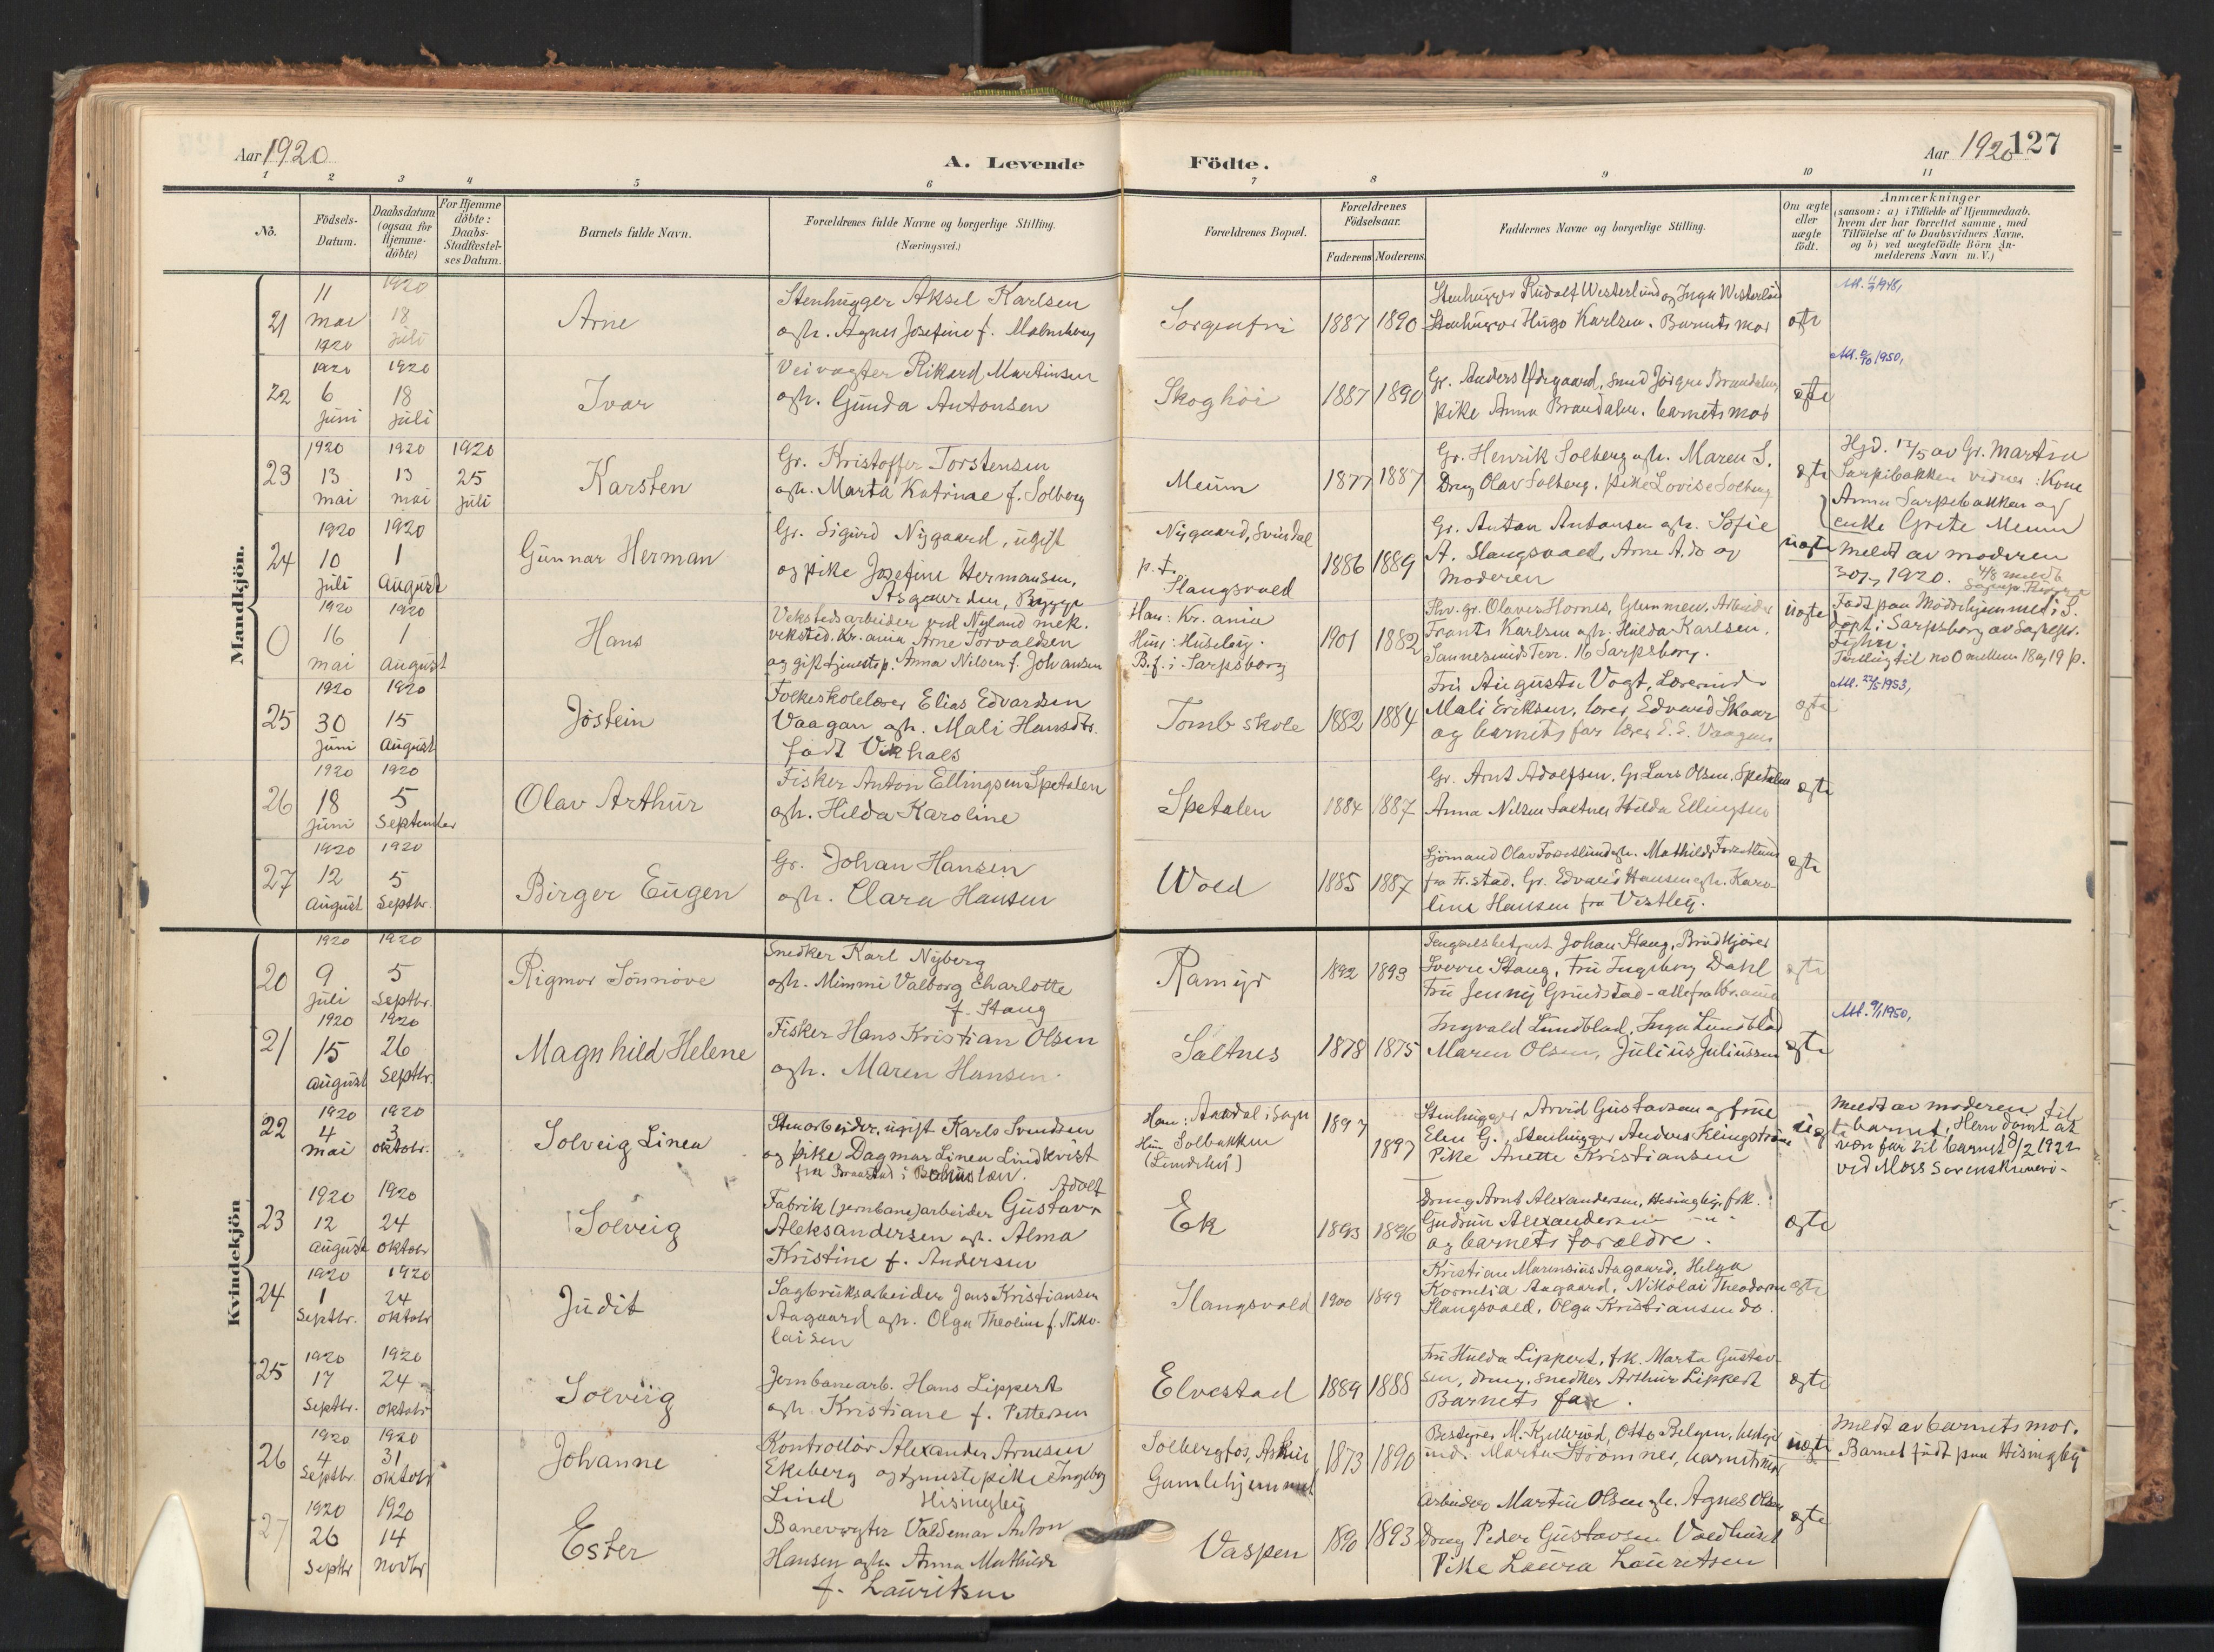 Aar 1920
A. Levende Födte.
Aar 1920 127
1 2 3 4 5 6 7 8 9 10 11
No.
Födsels-
Datum.
Daabsdatum
(ogsaa for
Hjemme-
döbte)
For Hjemme
döbte:
Daabs-
Stadfæstel-
ses Datum.
Barnets fulde Navn.
Forældrenes fulde Navne og borgerlige Stilling.
(Næringsvei.)
Forældrenes Bopæl.
Forældrenes
Födselsaar.
Faderens Moderens
Faddernes Navne og borgerlige Stilling.
Om ægte
eller
uægte
födt.
Anmærkninger
(saasom: a) i Tilfælde af Hjemmedaab,
hvem der har forrettet samme, med
Tilföielse af to Daabsvidners Navne,
og b) ved uægtefödte Börn An-
melderens Navn m. V.)
Mandkjön.
21
11
mai
1920
1920
18
juli
Arne
Stenhugger Aksel Karlsen
og h. Agnes Josefine f. Malmberg
Sorgenfri
1887 1890
Stenhugger Rudolf Westerlund og Inga Westerlund
Stenhugger Hugo Karlsen. Barnets mor
ægte
22
1920
6
juni
1920
18
juli
Ivar
Veivogter Rikard Martinsen
og h. Gunda Antonsen
Skoghöi
1887 1890
Gr. Anders Ödegaard, smed Jörgen Brandalen
pike Anna Brandalen. barnets mor
ægte
23
1920
13
mai
1920
13
mai
1920
25
juli
Karsten
Gr. Kristoffer Torstensen
og h. Marta Katrine f. Solberg
Meum
1877 1887
Gr. Henrik Solberg og h. Maren S.
Dreng Olav Solberg. pike Lovise Solberg
ægte
Hjd. 13/5 av Gr. Martin
Sarpebakken vidner: Kone
Anna Sarpebakken og
enke Grete Meum
24
1920
10
juli
1920
1
August
Gunnar Herman
Gr. Sigurd Nygaard, ugift
og pike Josefine Hermansen,
Asgaarden, Rygge
Nygaard, Svindal
p.t.
Slangsvold
1886 1889
Gr. Anton Antonsen og h. Sofie
A. Slangsvold, Arne A. do og
Moderen
uægte
meldt av moderen
30/7 1920.
0
1920
16
mai
1920
1
August
Hans
Verkstedsarbeider ved Nyland mek.
verksted. Kr.ania Arne Torvaldsen
og gift tjenestep. Anna Nilsen f. Johansen
Han: Kr.ania
Hun: Huseby.
B. f. i Sarpsborg
1901 1882
Gr. Olaves Hornes, Glemmen, Arbeider
Frants Karlsen og h. Hulda Karlsen.
Sannesunds Terr. 16 Sarpsborg.
uægte
Födt paa Mödrehjemmet i S.
döpt i Sarpsborg av
Tilföielse til no 0 mellem 18 og 19 p.
25
1920
30
juni
1920
15
August
Jostein
Folkeskolelærer Elias Edvardsen
Vaagan og h. Mali Hansdtr.
födt Vikhals
Tomb skole
1882 1884
Fru Augusta Vogt, Lærerinde
Mali Eriksen, lærer Edvard Skaar
og barnets far lærer E. E. Vaagan
ægte
26
1920
18
juni
1920
5
September
Olav Arthur
Fisker Anton Ellingsen Spetalen
og h. Hilda Karoline
Spetalen
1884 1887
Gr. Arnt Adolfsen, Gr Lars Olsen, Spetalen
Anna Nilsen Saltnes Hilda Ellingsen
ægte
27
1920
12
August
1920
5
Septbr.
Birger Eugen
Gr. Johan Hansen
og h. Clara Hansen
Wold
1885 1887
Sjömand Olav Forsetlund og h. Mathilde Forsetlund
fra Fr.stad. Gr. Edvard Hansen og h. Karo-
line Hansen fra Vestby.
ægte
Kvindekjön
20
1920
9
juli
1920
5
Septbr.
Rigmor Sönnöve
Snedker Karl Nyberg
og h. Mimmi Valborg Charlotte
f. Stang
Ramyr
1892 1893
Fængselsbetjent Johan Stang, Brödkjörer
Sverre Stang, Fru Ingeborg Dahl
Fru Jenny Grudstad - alle fra Kr.ania
ægte
21
1920
15
August
1920
26
Septbr.
Magnhild Helene
Fisker Hans Kristian Olsen
og h. Maren Hansen.
Saltnes
1878 1875
Ingvald Lundblad, Inga Lundblad
Maren Olsen, Julius Juliussen
ægte
22
1920
4
mai
1920
3
oktobr.
Solveig Linea
Stenarbeider, ugift Karlo Svendsen
og pike Dagmar Linea Lindkvist
i Bohuslän.
Hun Solbakken
1897
1897
Stenhugger Arvid Gustavsen og frue
Elen G. Stenhugger Anders Klingström
Pike Anette Kristiansen
uegte
meldt av moderen til
barnet, Han dömt at
være far til barnet 8/2 1922
ved Moss Sorenskriveri-
23
1920
12
August
1920
24
oktobr
Solveig
Adolf
Fabrik (jernbane)arbeider Gustav
Aleksandersen og h. Alma
Kristine f. Andersen
Ek
1893 1896
Dreng Arnt Alexandersen, Hesingby, frk.
Gudrun Alexandersen - " -
og barnets forældre.
ægte
24
1920
1
Septbr.
1920
24
oktobr
Judit
Sagbruksarbeider Jens Kristiansen
Aagaard og h. Olga Theoline f. Niko-
laisen
Slangsvold
1900 1899
Kristian Marensius Aagaard, Helga
Kornelia Aagaard, Nikolai Theodorsen
Slangsvold, Olga Kristiansen do.
ægte
25
1920
17
Septbr.
1920
24
oktobr
Solveig
Jernbanearb. Hans Lippert
og h. Kristiane f. Pettersen
Elvestad
1889 1888
Fru Hulda Lippert, frk. Marta Gustav-
sen, dreng, snedker Arthur Lippert
Barnets far.
ægte
26
1920
4
Septbr.
1920
31
oktobr
Johanne
Kontrollör Alexander Arnesen
Ekeberg og tjenestepike Ingeborg
Lind Hisingby
Solbergfos, Askim
Gamlehjemmet
1873 1890
Bestyrer M. Kjelleröd, Otto Belgen, bestyrer-
ind. Marta Strömnes, barnets mor
uægte
Meldt av barnets mor.
Barnet födt paa Hisingby
27
1920
26
Septbr
1920
14
Novbr
Ester
Banevogter Valdemar Anton
Hansen og h. Anna Mathilde
f. Lauritsen
Vaspen
1890 1893
Arbeider Martin Olsen og h. Agnes Olsen
Dreng Peder Gustavsen Voldhuset
Pike Laura Lauritsen
ægte